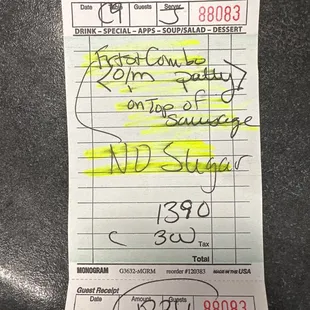 Date Guests Server 88083
DRINK – SPECIAL – APPS – SOUP/SALAD – DESSERT
Combo
O/m patty
on Top of
Sausage
NO Sugar
1390
Tax
Total
MONOGRAM G3632-MGRM reorder #120383 MADE IN THE USA
Guest Receipt
Date Amount Guests 88083